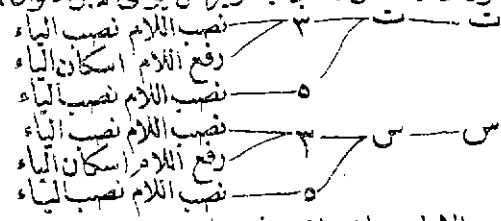 ت ت ٣ نصب اللام نصب الياء
رفع اللام اسكان الياء
٥ نصب اللام نصب الياء
س س ٣ نصب اللام نصب الياء
رفع اللام اسكان الياء
٥ نصب اللام نصب الياء